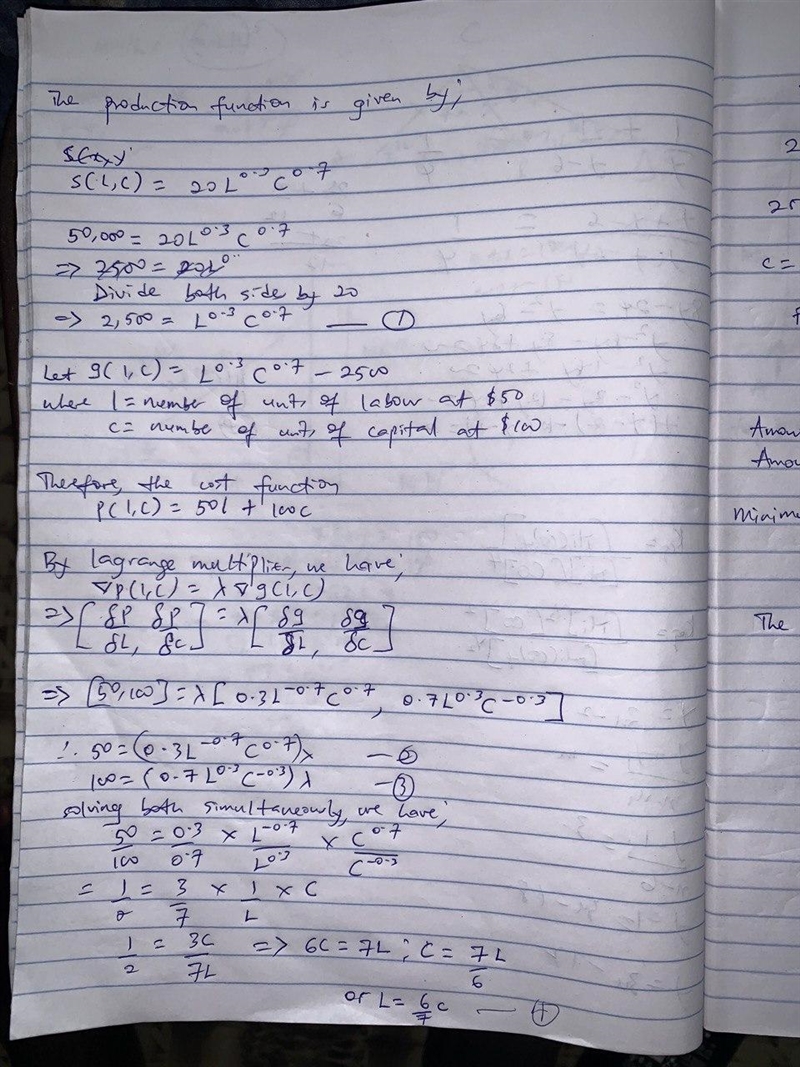 The production function is given by;
S(x,y)
S(L,C) = 20L^0.3 C^0.7
50,000 = 20L^0.3 C^0.7
=> 2500 = 20L^0..
Divide both side by 20
=> 2,500 = L^0.3 C^0.7 — ①
Let g(l,c) = L^0.3 C^0.7 - 2500
where l = number of units of labour at $50
c = number of units of capital at $100
Therefore, the cost function
P(l,c) = 50l + 100c
By lagrange multiplier, we have;
∇P(l,c) = λ∇g(l,c)
=> [δP/δL, δP/δC] = λ[δg/δL, δg/δC]
=> [50,100] = λ[0.3L^-0.7 C^0.7, 0.7L^0.3 C^-0.3]
∴ 50 = (0.3L^-0.7 C^0.7)λ — ②
100 = (0.7L^0.3 C^-0.3)λ — ③
solving both simultaneously, we have;
50/100 = 0.3/0.7 × L^-0.7/L^0.3 × C^0.7/C^-0.3
= 1/2 = 3/7 × 1/L × C
1/2 = 3C/7L => 6C = 7L ; C = 7L/6
or L = 6/7 C — ④
2
25
C =
Amou
Amou
Minimu
The